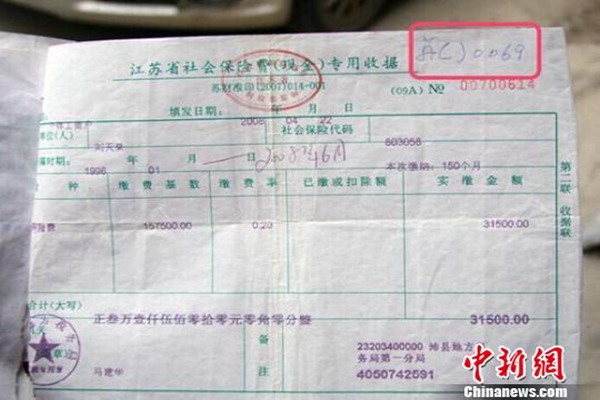 0069
江苏省社会保险费(现金)专用收据
苏财准印(2007)014-001
(09A) № 00700614
填发日期: 2008 年 04 月 22
位(人) 社会保险代码 603058
属时期: 1996 年 01 月 日 本次缴纳: 150个月
种 缴费基数 缴费率 已缴或扣除额 实缴金额
险费 157500.00 0.20 31500.00
合计(大写) 正叁万壹仟伍佰零拾零元零角零分整 31500.00
(章) 备注 23203400000 沛县地方
务局第一分局
马建华 4050742591
第二联 收据联
中新网
www.chinanews.com